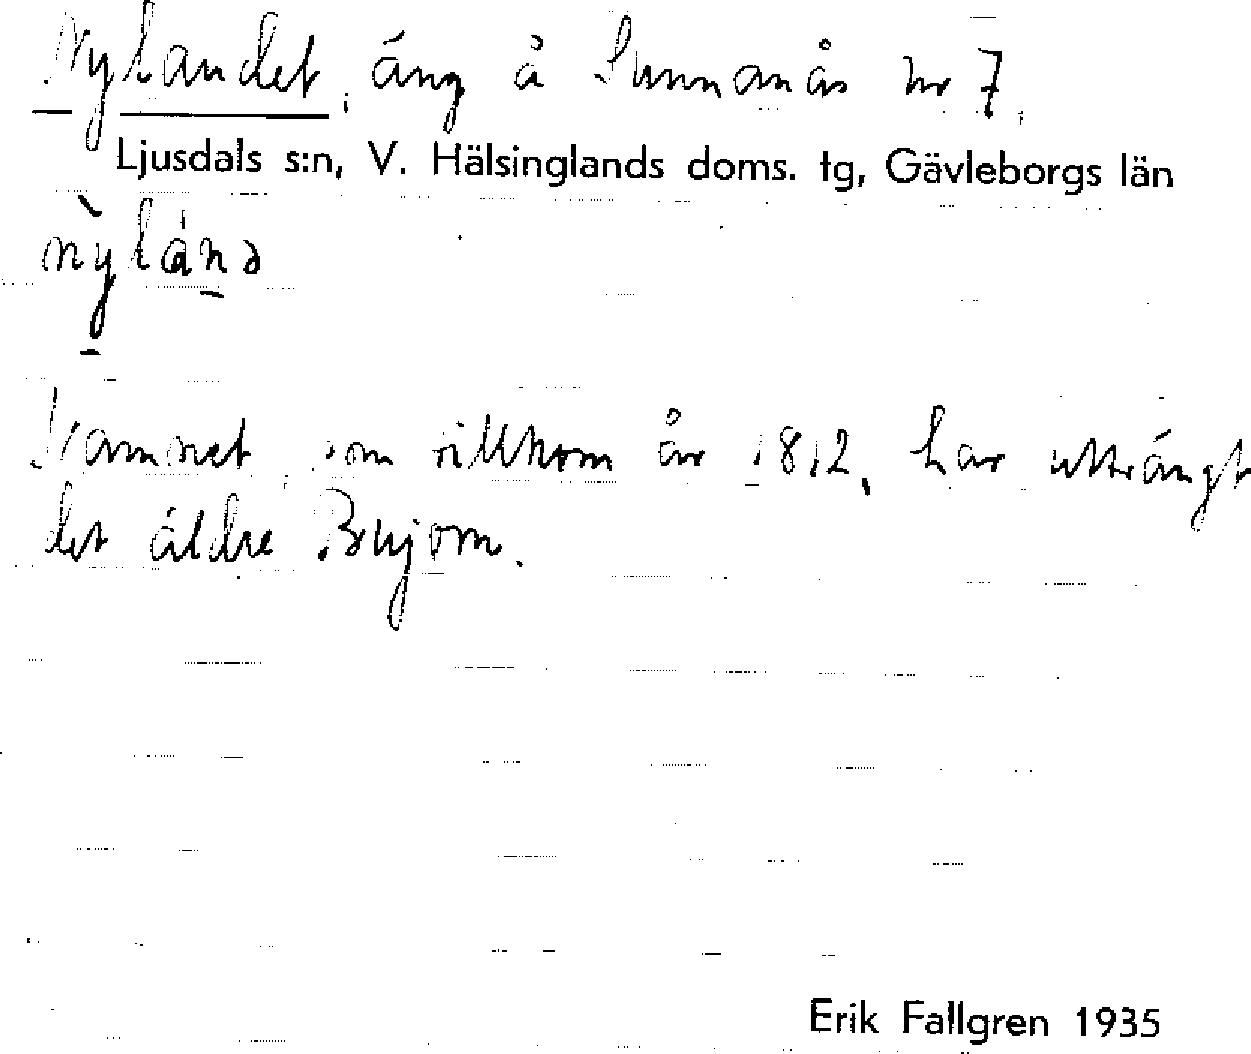 Nylandet, äng å Sunnanås nr 7,
Ljusdals s:n, V. Hälsinglands doms. tg, Gävleborgs län
nỳlánə
Namnet, som tillkom år 1812, har utträngt
det äldre Bujom.
Erik Fallgren 1935